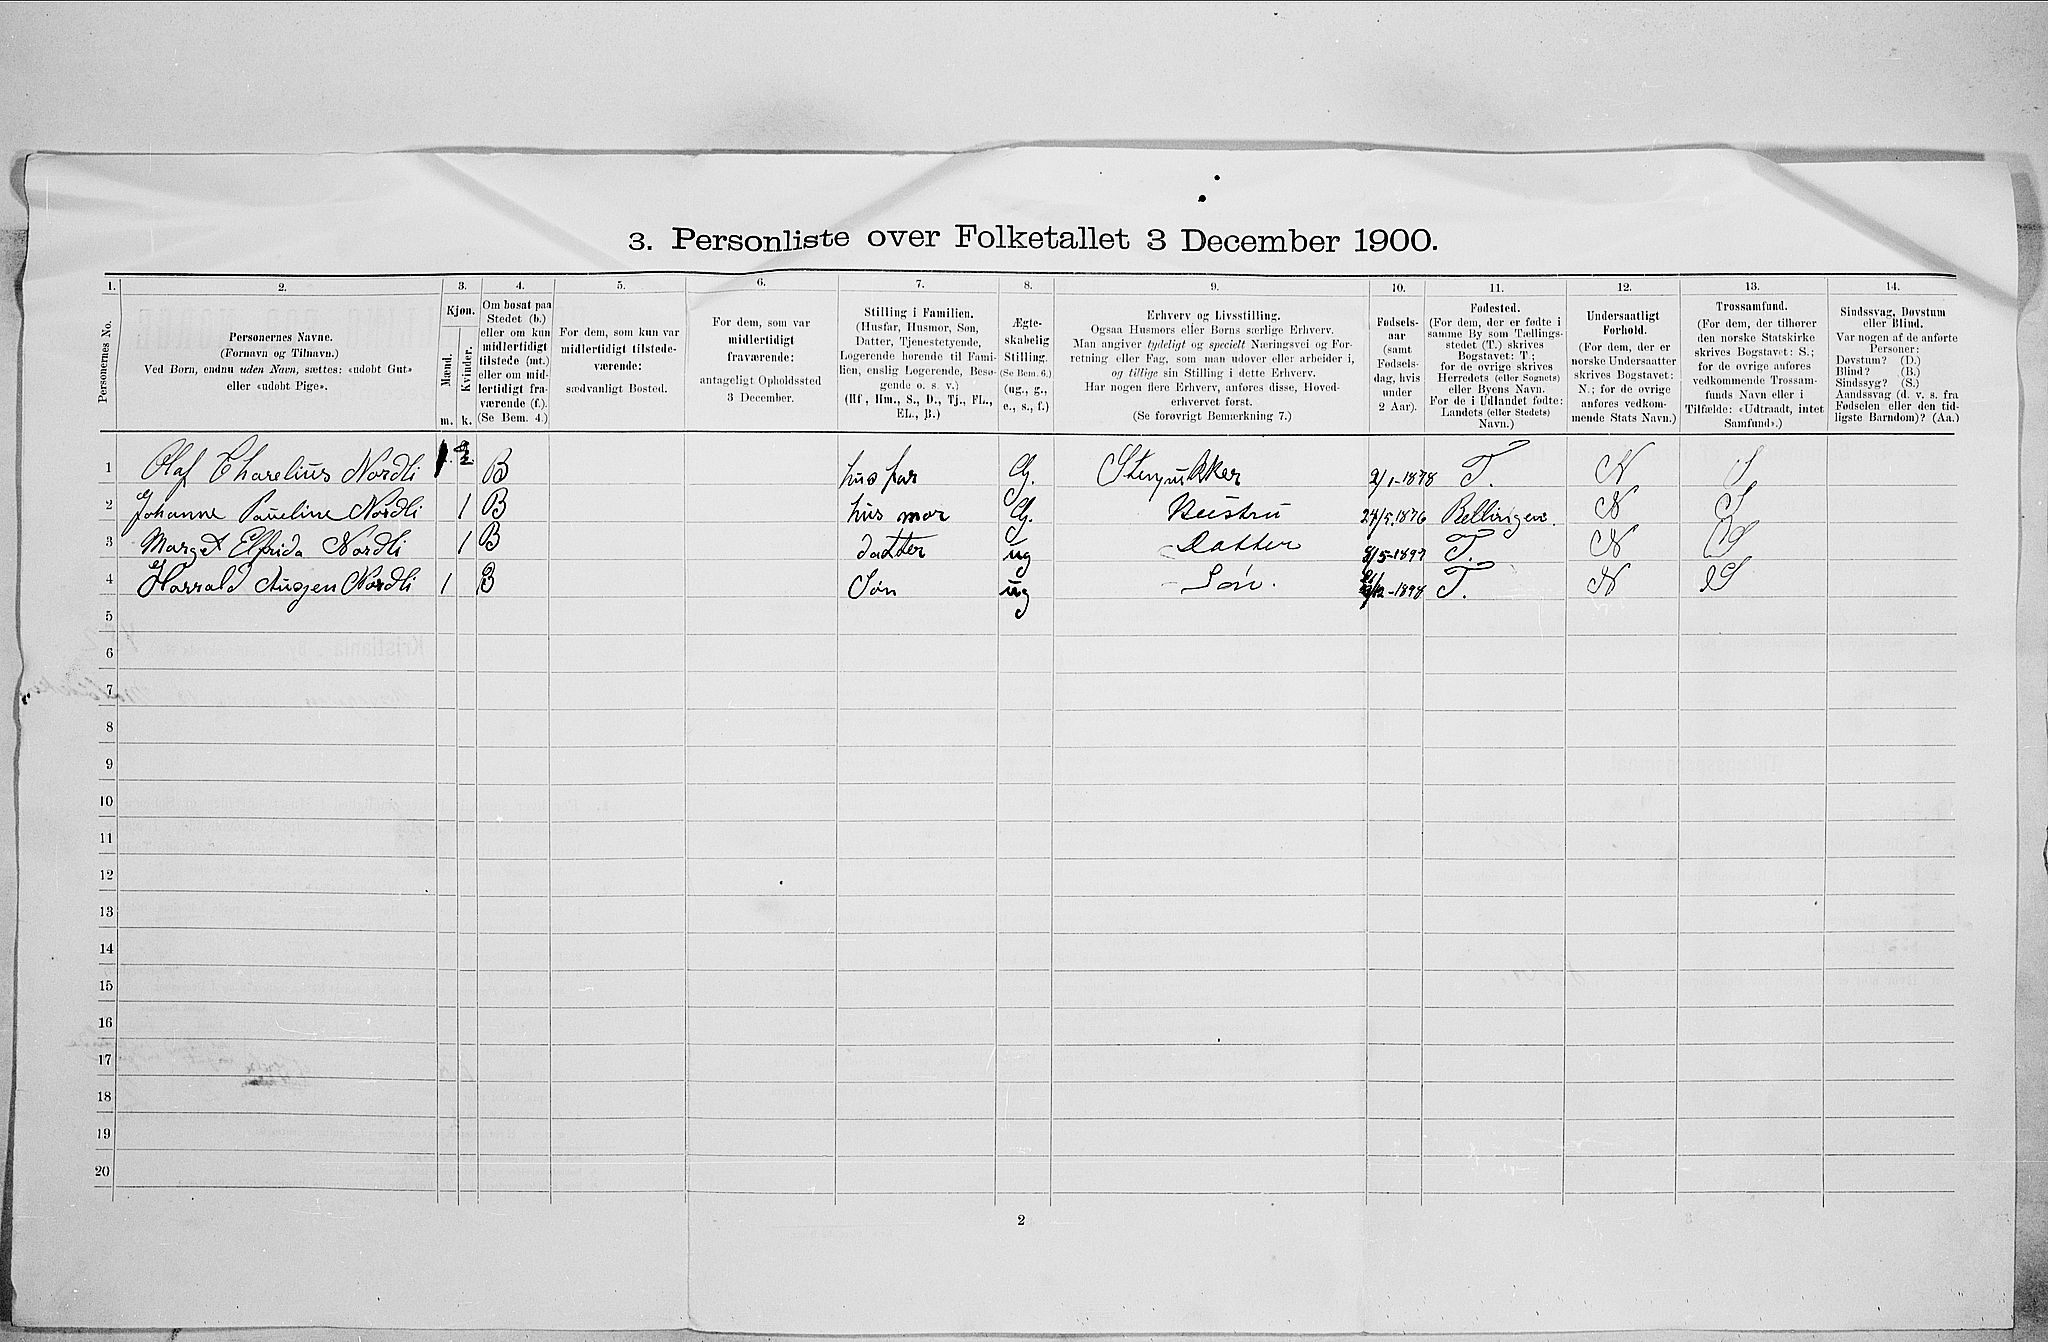 3. Personliste over Folketallet 3 December 1900.
1. 2. 3. 4. 5. 6. 7. 8. 9. 10. 11. 12. 13. 14.
Personernes No.
Personernes Navne.
(Fornavn og Tilnavn.)
Ved Børn, endnu uden Navn, sættes: «udøbt Gut»
eller «udøbt Pige».
Kjøn.
Mænd.
Kvinder.
m. k.
Om bosat paa
Stedet (b.)
eller om kun
midlertidigt
tilstede (mt.)
eller om mid-
lertidigt fra-
værende (f.).
(Se Bem. 4.)
For dem, som kun var
midlertidigt tilstede-
værende:
sædvanligt Bosted.
For dem, som var
midlertidigt
fraværende:
antageligt Opholdssted
3 December.
Stilling i Familien.
(Husfar, Husmor, Søn,
Datter, Tjenestetyende,
Logerende hørende til Fami-
lien, enslig Logerende, Besø-
gende o. s. v.)
(Hf, Hm., S., D., Tj., FL.,
EL., B.)
Ægte-
skabelig
Stilling.
(Se Bem. 6.)
(ug., g.,
e., s., f.)
Erhverv og Livsstilling.
Ogsaa Husmors eller Børns særlige Erhverv.
Man angiver tydeligt og specielt Næringsvei og For-
retning eller Fag, som man udøver eller arbeider i,
og tillige sin Stilling i dette Erhverv.
Har nogen flere Erhverv, anføres disse, Hoved-
erhvervet først.
(Se forøvrigt Bemærkning 7.)
Fødsels-
aar
(samt
Fødsels-
dag, hvis
under
2 Aar).
Fødested.
(For dem, der er fødte i
samme By som Tællings-
stedet (T.) skrives
Bogstavet: T;
for de øvrige skrives
Herredets (eller Sognets)
eller Byens Navn.
For de i Udlandet fødte:
Landets (eller Stedets)
Navn.)
Undersaatligt
Forhold.
(For dem, der er
norske Undersaatter
skrives Bogstavet:
N.; for de øvrige
anføres vedkom-
mende Stats Navn.)
Trossamfund.
(For dem, der tilhører
den norske Statskirke
skrives Bogstavet: S.;
for de øvrige anføres
vedkommende Trossam-
funds Navn eller i
Tilfælde: «Udtraadt, intet
Samfund».)
Sindssvag, Døvstum
eller Blind.
Var nogen af de anførte
Personer:
Døvstum? (D.)
Blind? (B.)
Sindssyg? (S.)
Aandssvag (d. v. s. fra
Fødselen eller den tid-
ligste Barndom)? (Aa.)
1 Olaf Tharelius Nordli 1 B hus far G. 2/1-1878 T. N S
2 Johanne Paueline Nordli 1 B hus mor G. Heustru 24/5 1876 N S
3 Marget Elfrida Nordli 1 B datter ug Datter 8/5-1897 T. N S
4 Harrald Nordli 1 B Søn ug Søn. 1898 T. N S
5
6
7
8
9
10
11
12
13
14
15
16
17
18
19
20
2